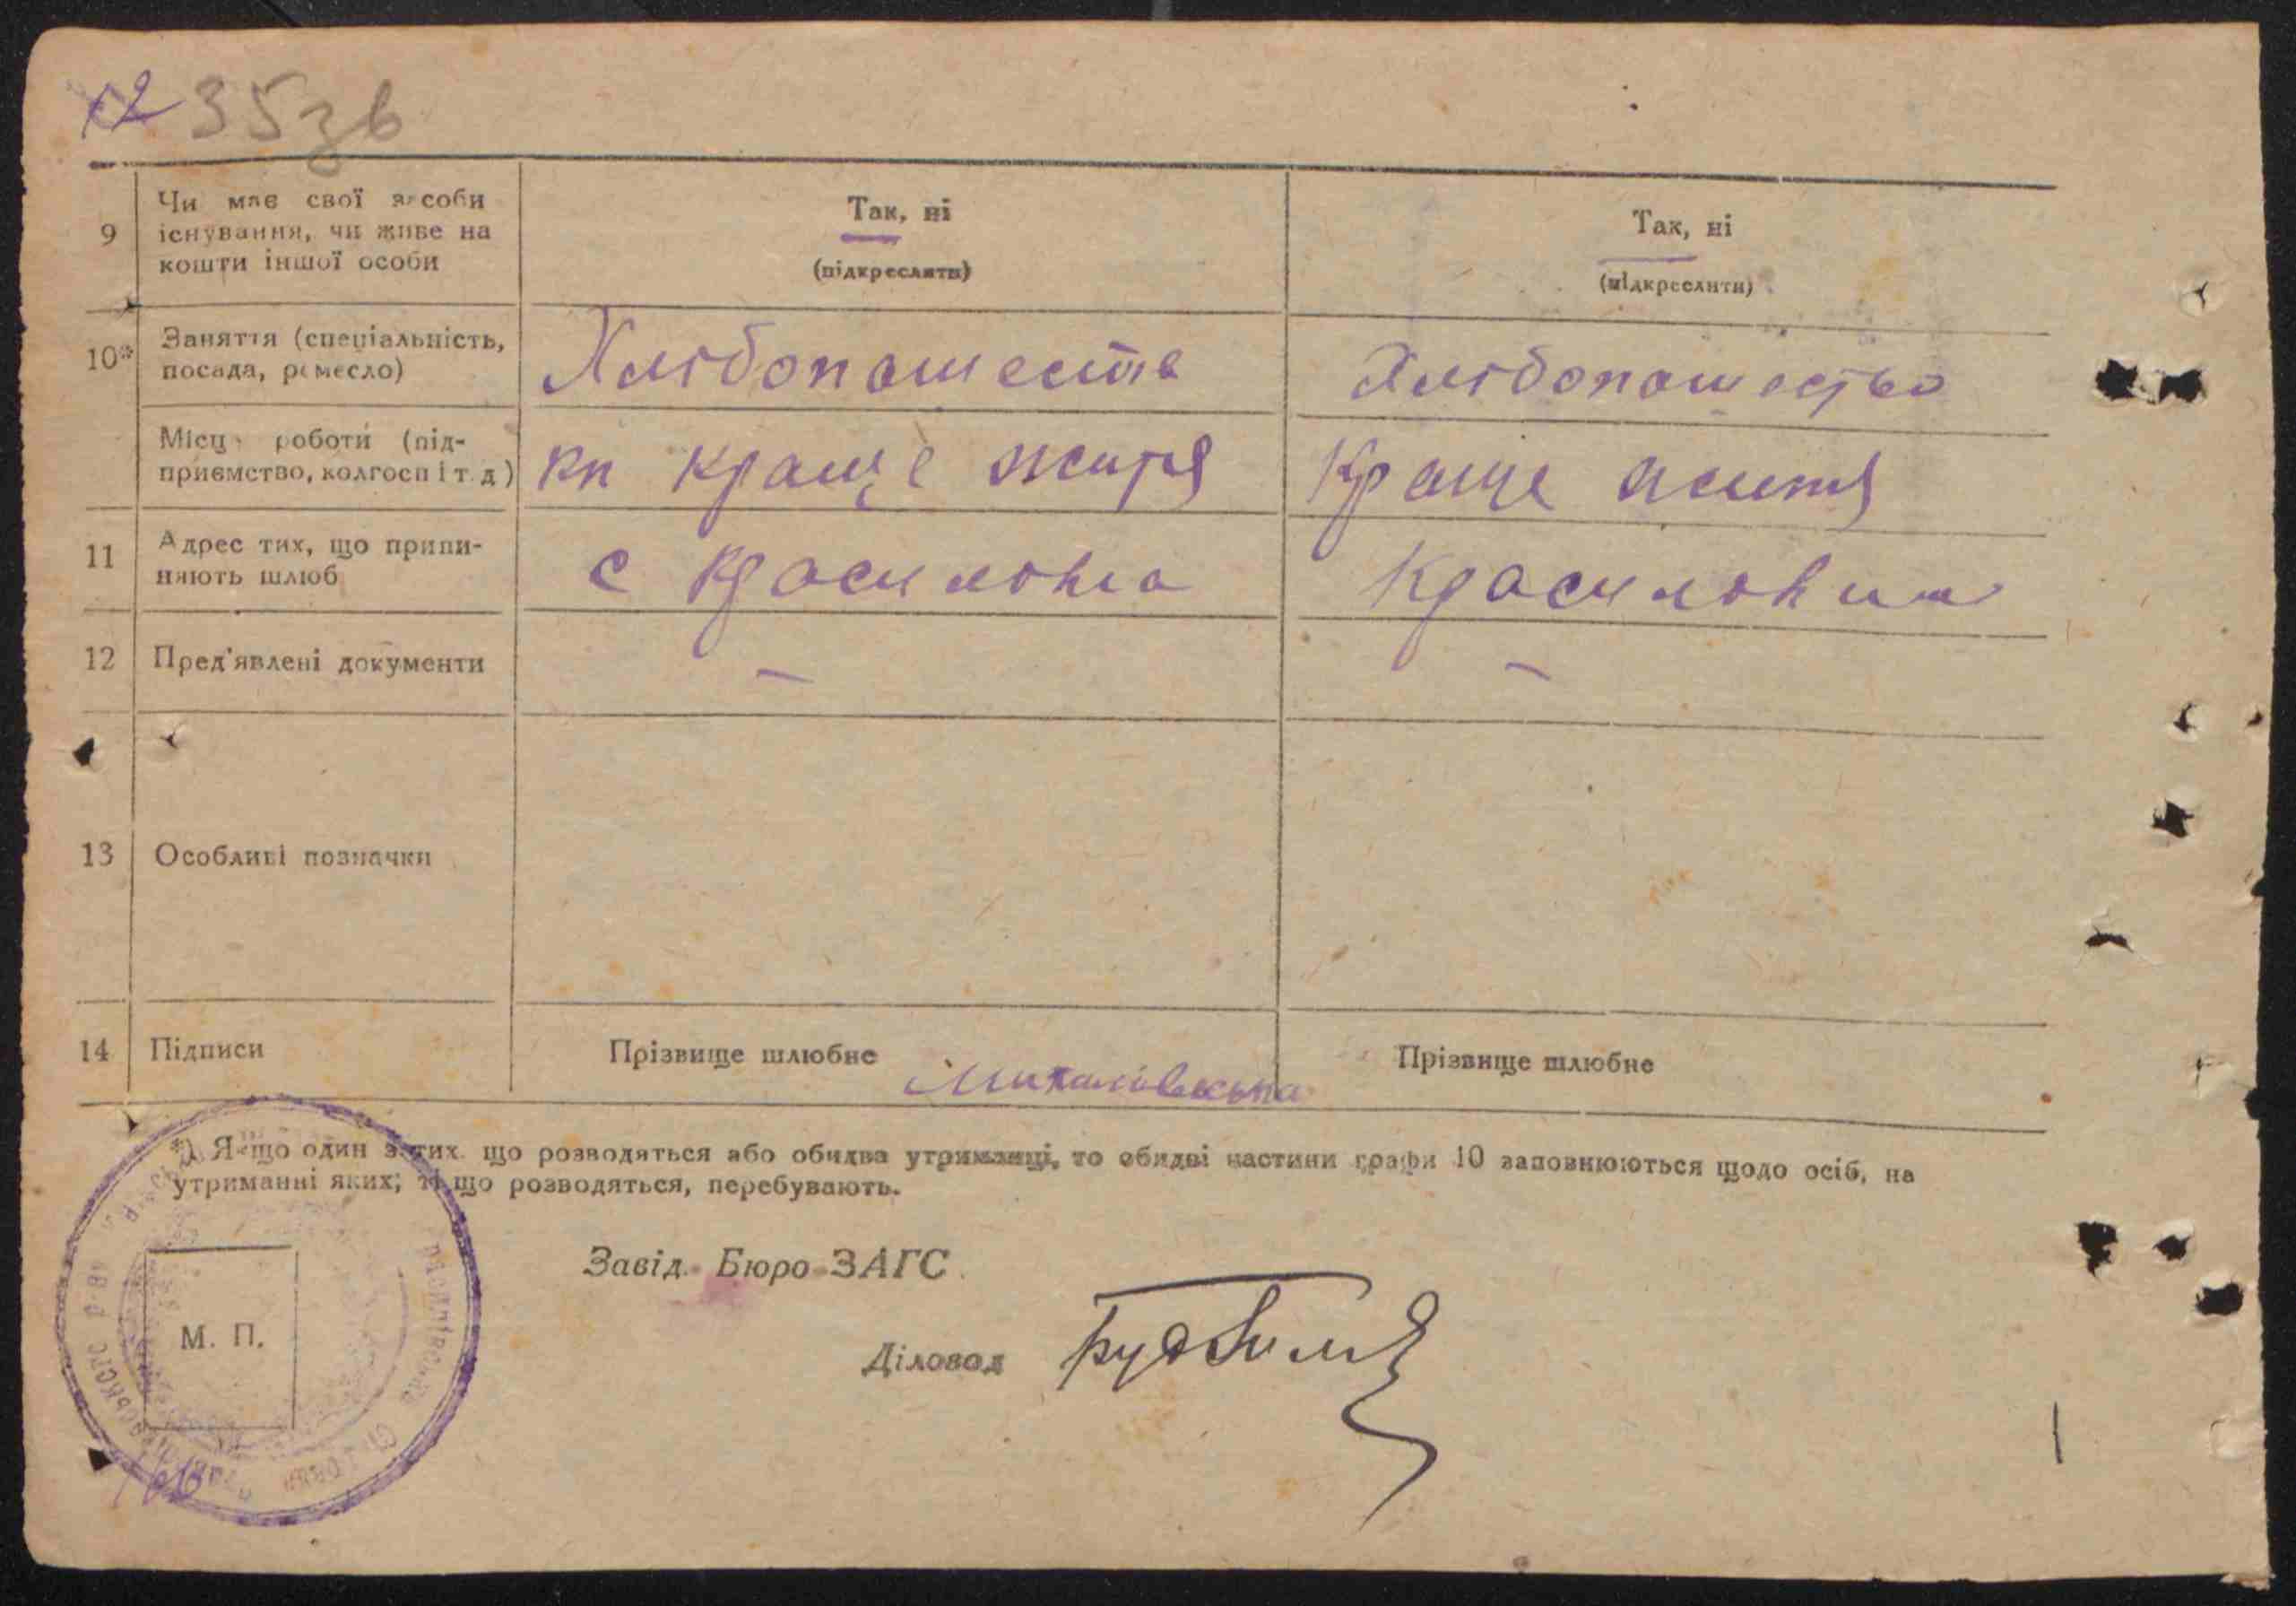 12 35зв
9 Чи має свої засоби існування, чи живе на кошти іншої особи
Так, ні
(підкреслити)
Так, ні
(підкреслити)
10* Заняття (спеціальність, посада, ремесло)
Хлібопашество
Хлібопашество
Місце роботи (підприємство, колгосп і т. д)
кп краще життя
Краще життя
11 Адрес тих, що припиняють шлюб
с Красилівка
12 Пред'явлені документи
–
–
13 Особливі позначки
14 Підписи
Прізвище шлюбне
Михалівська
Прізвище шлюбне
*) Якщо один з тих що розводяться або обидва утриманці, то обидві частини графи 10 заповнюються щодо осіб, на
утриманні яких, ті що розводяться, перебувають.
Завід. Бюро ЗАГС
Діловод
М. П.